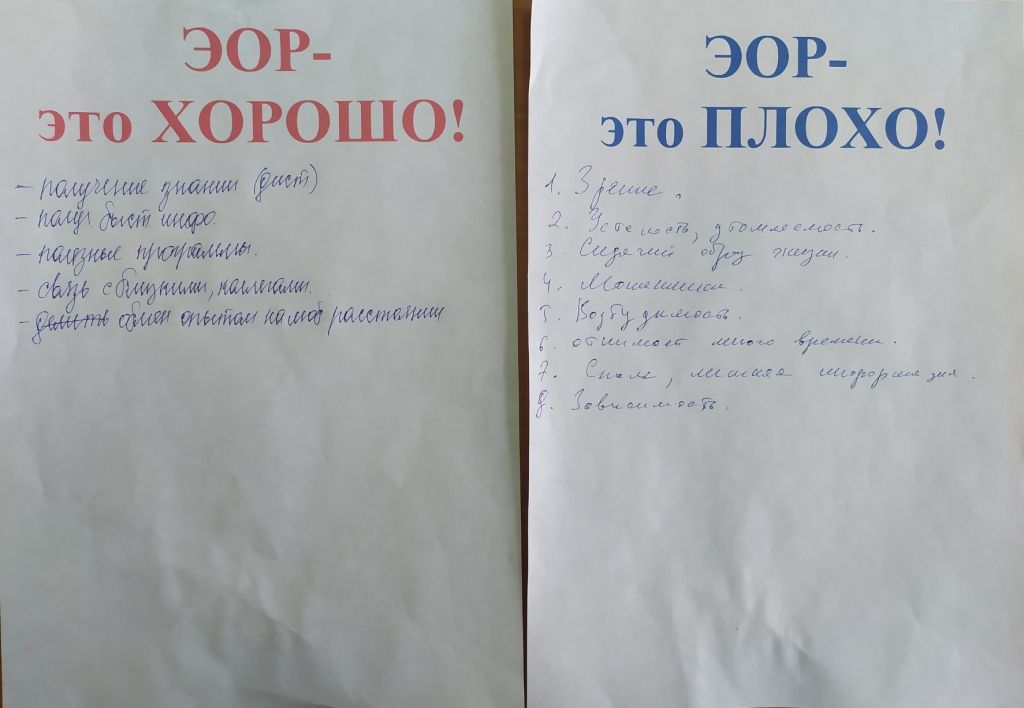 ЭОР-
это ХОРОШО!
- получение знании (дист)
- получ. быст. инфо.
- полезные программы.
- связь с близкими, коллегами.
- делить обмен опытом на люб. расстоянии
ЭОР-
это ПЛОХО!
1. Зрение.
2. Усталость, утомляемость.
3. Сидячий образ жизни.
4. Мошенники.
5. Возбудимость.
6. отнимает много времени.
7. Спам, лишняя информация.
8. Зависимость.